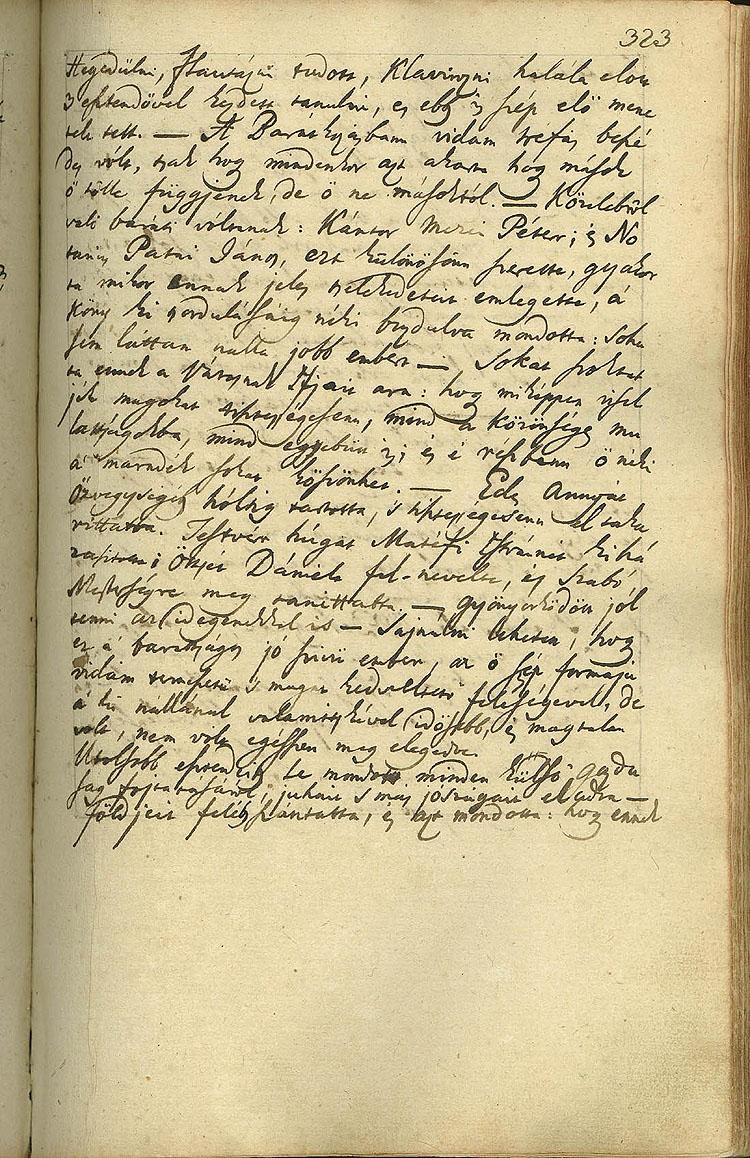 323
Hegedülni, Flautázni tudott, Klavirozni halála előtt
3 esztendővel kezdett tanulni, és ebbe is szép elő mene
telt tett. — A Barátkozásbann vidám tréfás beszé
dű vólt, tsak hogy mindenkor azt akarta hogy mások
ő tölle függjenek, de ő ne másoktól. — Közelebbről
való baráti vóltanak: Kántor Mezei Péter; és No
tarius Patai János, ezt különösönn szerette, gyakor
ta mikor ennek jeles tselekedeteit emlegette, á
köny ki tsordulásáig néki buzdulva mondotta: Soha
sem láttam nálla jobb embert — Sokat szoktat
ta ennek a Városnak Ifjait arra: hogy miképpen visel
jék magokat tisztességesenn, mind a közönséges mu
lattságokba, mind egyebütt is; és é részbenn ő néki
á maradék sokat köszönhet. — Édes Annyát
özvegységig hóltig tartotta, s tisztességesenn el taka
rittatta. Testvér húgát Mátéfi Istvánnét ki há
zasitotta; Öttsét Dánielt fel-nevelte, és Szabó
Mesterségre meg tanittatta. — gyönyörködött jól
tenni az idegenekkel is — Sajnálni lehetett, hogy
ez á barátságos jó szivű ember, az ő szép formájú
vidám természetű s magát kedveltető feleségével, de
á ki nállánál valamitskével idősebb, és magtalan
volt, nem vólt egésszen meg elégedve.
Utolsóbb esztendeibe le mondott minden külső gazda
ság folytatásáról, juhait s más jószágait eladta —
földjeit felébe szántatta, és azt mondotta: hogy ennek